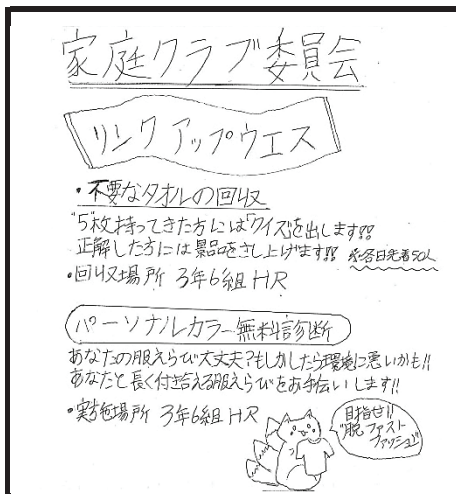 家庭クラブ委員会
リンクアップウエス
・不要なタオルの回収
"5"枚持ってきた方には「クイズ」を出します!!
正解した方には景品をさし上げます!! ※各日先着50人
・回収場所 3年6組 HR
パーソナルカラー無料診断
あなたの服えらび大丈夫?もしかしたら環境に悪いかも!!
あなたと長く付き合える服えらびをお手伝いします!!
・実施場所 3年6組 HR
目指せ!!
"脱ファスト
ファッション"